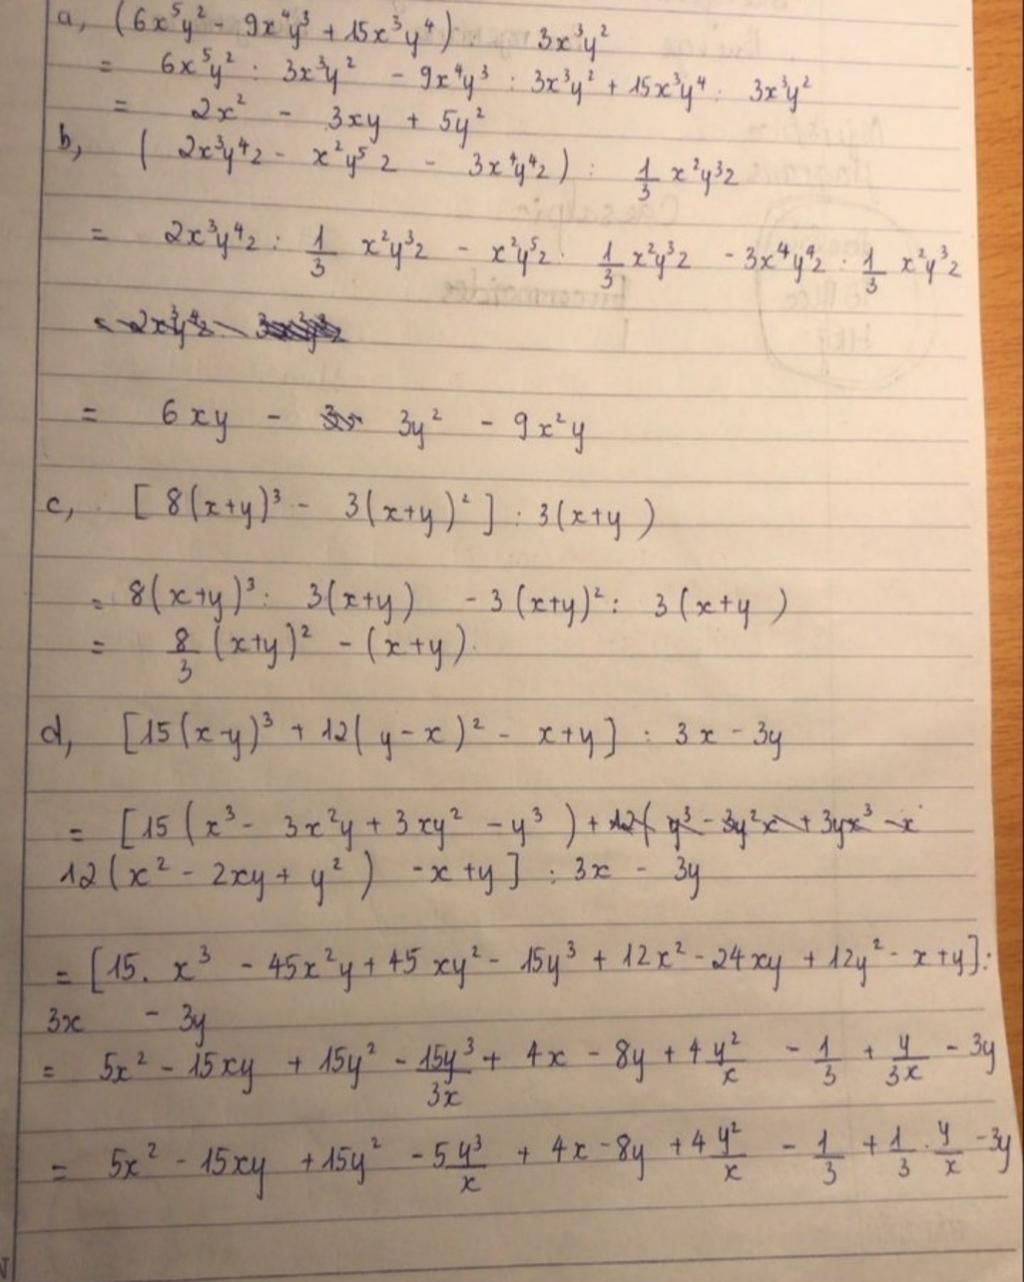 a, (6x⁵y² - 9x⁴y³ + 15x³y⁴) : 3x³y²
= 6x⁵y² : 3x³y² - 9x⁴y³ : 3x³y² + 15x³y⁴ : 3x³y²
= 2x² - 3xy + 5y²
b, ( 2x³y⁴z - x²y⁵z - 3x⁴y⁴z ) : 1/3 x²y³z
= 2x³y⁴z : 1/3 x²y³z - x²y⁵z : 1/3 x²y³z - 3x⁴y⁴z : 1/3 x²y³z
= 6xy - 3y² - 9x²y
c, [ 8(x+y)³ - 3(x+y)² ] : 3(x+y)
= 8(x+y)³ : 3(x+y) - 3(x+y)² : 3(x+y)
= 8/3 (x+y)² - (x+y)
d, [15(x-y)³ + 12(y-x)² - x+y] : 3x - 3y
= [15(x³ - 3x²y + 3xy² - y³) + 12( y³ - 3y²x + 3yx³ - x
12(x² - 2xy + y²) - x + y] : 3x - 3y
= [15. x³ - 45x²y + 45xy² - 15y³ + 12x² - 24xy + 12y² - x+y] :
3x - 3y
= 5x² - 15xy + 15y² - 15y³/3x + 4x - 8y + 4 y²/x - 1/3 + y/3x - 3y
= 5x² - 15xy + 15y² - 5 y³/x + 4x - 8y + 4 y²/x - 1/3 + 1/3 . y/x - 3y